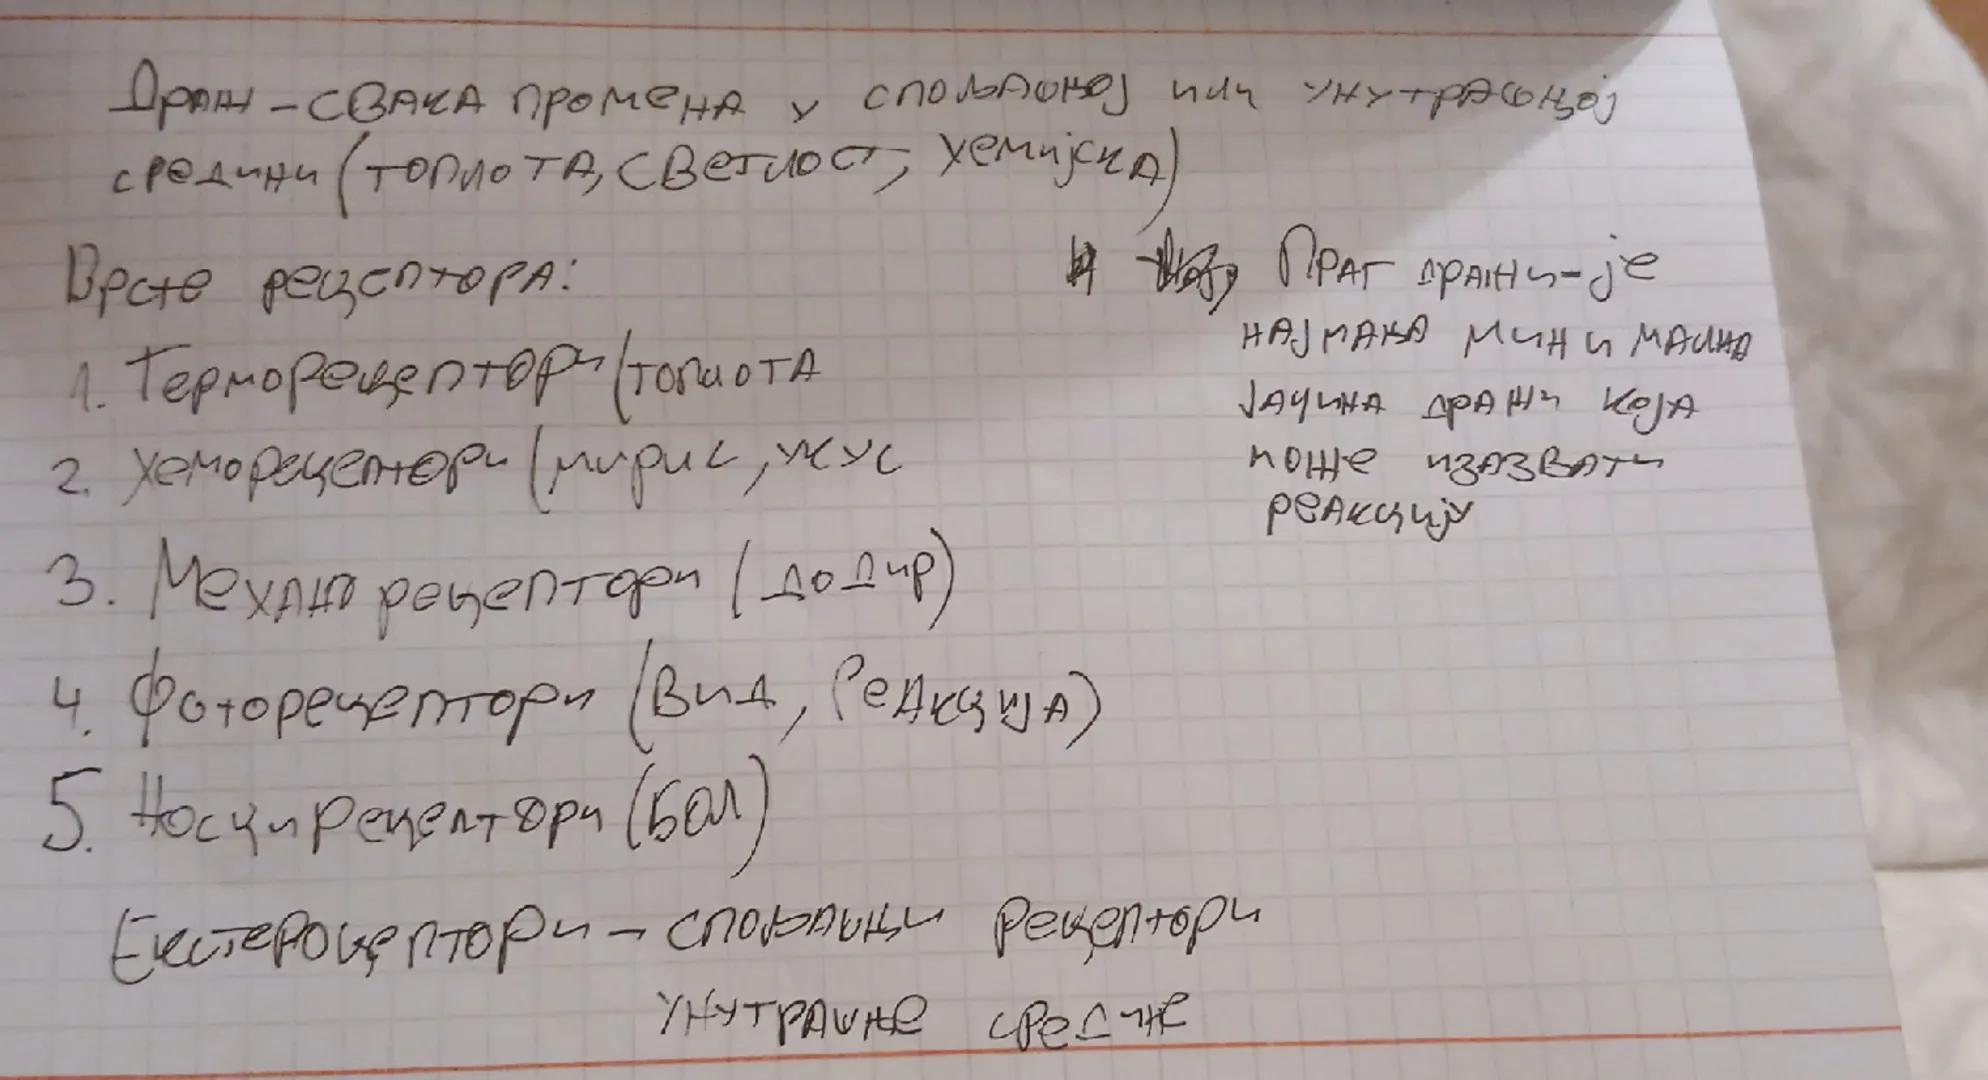 Драж - свака промена у спољашњој или унутрашњој
средини (топлота, светлост, хемијска)
Врсте рецептора:
1. Терморецептори (топлота
2. Хеморецептори (мирис, укус
3. Механорецептори (додир)
4. Фоторецептори (вид, Реакција)
5. Носцирецептори (бол)
Екстероцептори - спољашњи рецептори
унутрашње средине
Праг дражи - је
најмања минимална
јачина дражи која
може изазвати
реакцију